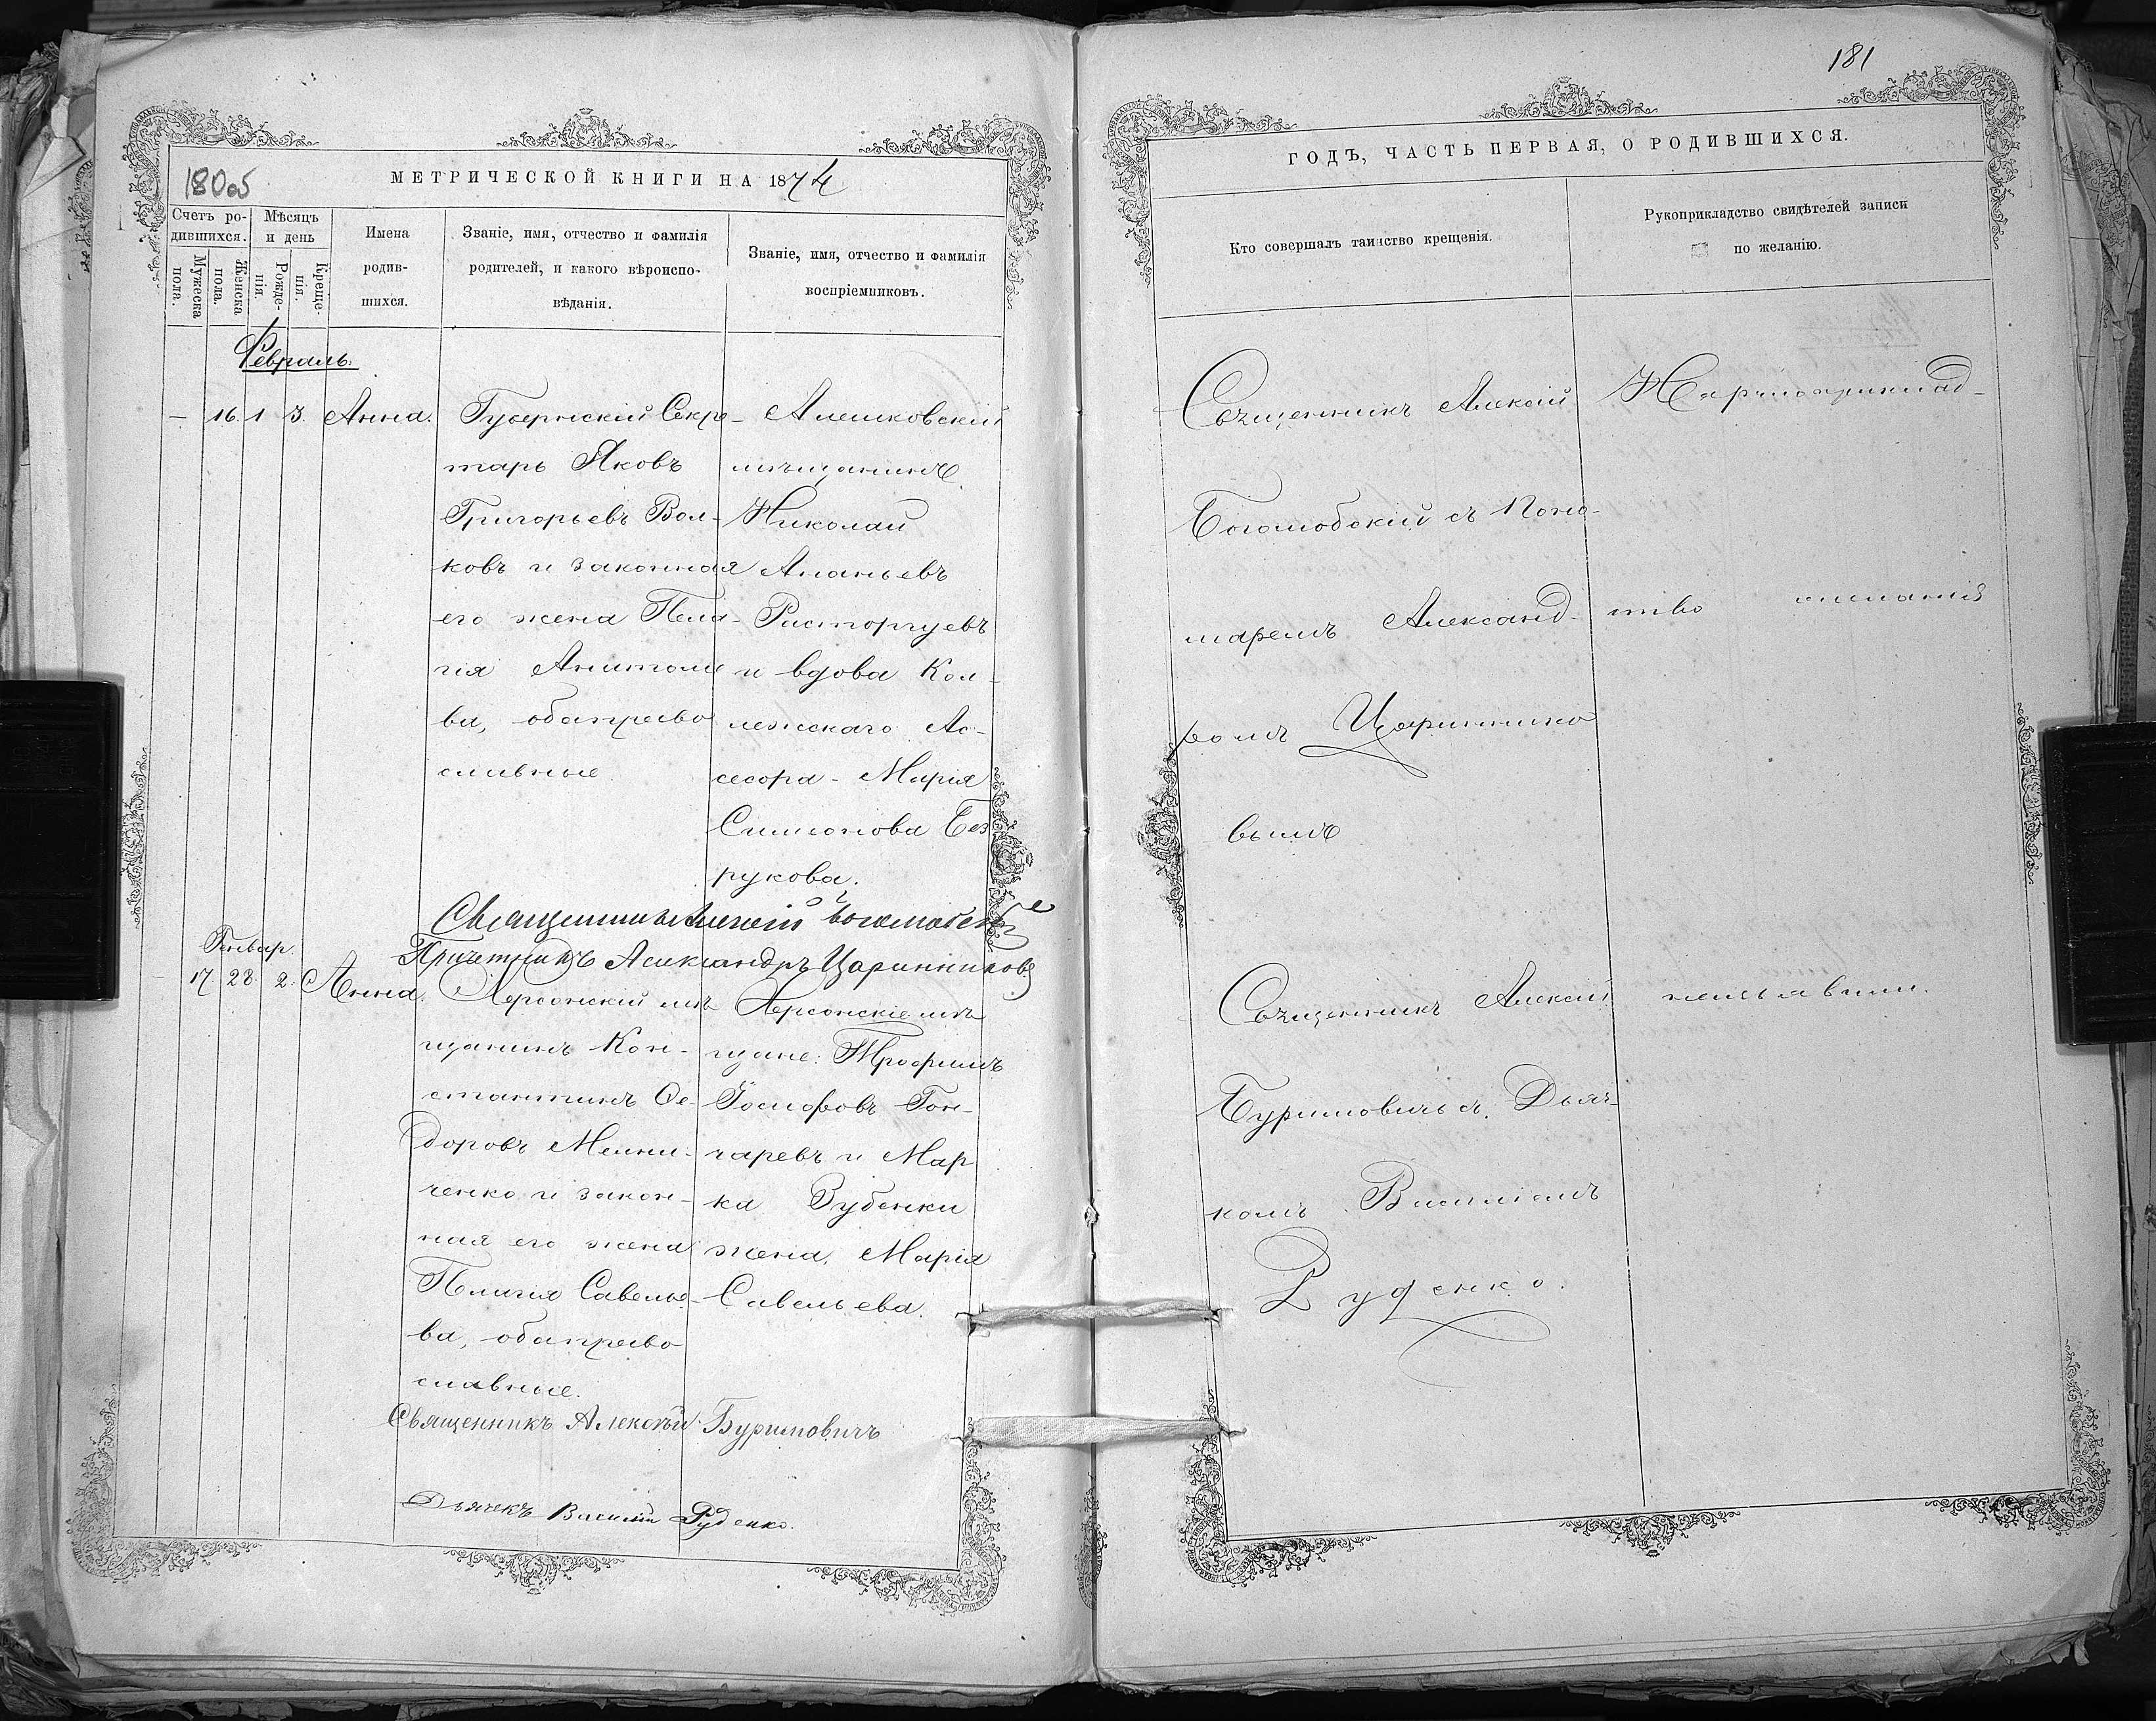 181
180об
МЕТРИЧЕСКОЙ КНИГИ НА 1874
Счетъ ро-
дившихся.
Мужеска
пола.
Женска
пола.
Мѣсяцъ
и день
Рожде-
нія.
Креще-
нія.
Имена
родив-
шихся.
Званіе, имя, отчество и фамилія
родителей, и какого вѣроиспо-
вѣданія.
Званіе, имя, отчество и фамилія
воспріемниковъ.
Февраль.
— 16. 1 3. Анна.
Губернскій Секре-
тарь Яковъ
Григорьевъ Вол-
ковъ и законная
его жена Пела-
гія Анатоліе
ва, обаправо
славные.
Алешковскій
мѣщанинъ
Николай
Ананьевъ
Расторгуевъ
и вдова Кол-
лежскаго Ас-
сесора - Марія
Симонова Без
рукова.
Священникъ Алексій
Причетникъ Александръ Царинниковъ
Генвар.
— 17. 28. 2. Анна.
Херсонскій мѣ
щанинъ Кон-
стантинъ Ѳе-
доровъ Мельни-
ченко и закон-
ная его жена
Пелагія Савелье-
ва, обаправо
славные.
Херсонскіе мѣ
щане: Трофимъ
Іосифовъ Гон-
чаревъ и Мар
ка Зубенки
жена, Марія
Савельева.
Священникъ Алексѣй Буримовичъ
Дьячекъ Василій Руденко.
ГОДЪ, ЧАСТЬ ПЕРВАЯ, О РОДИВШИХСЯ.
Кто совершалъ таинство крещенія.
Рукоприкладство свидѣтелей записи
по желанію.
Священникъ Алексій
Боголюбскій съ Поно-
маремъ Александ-
ромъ Царинико
вымъ
Священникъ Алексій
Буримовичъ съ Дьяч-
комъ Василіемъ
Руденко.